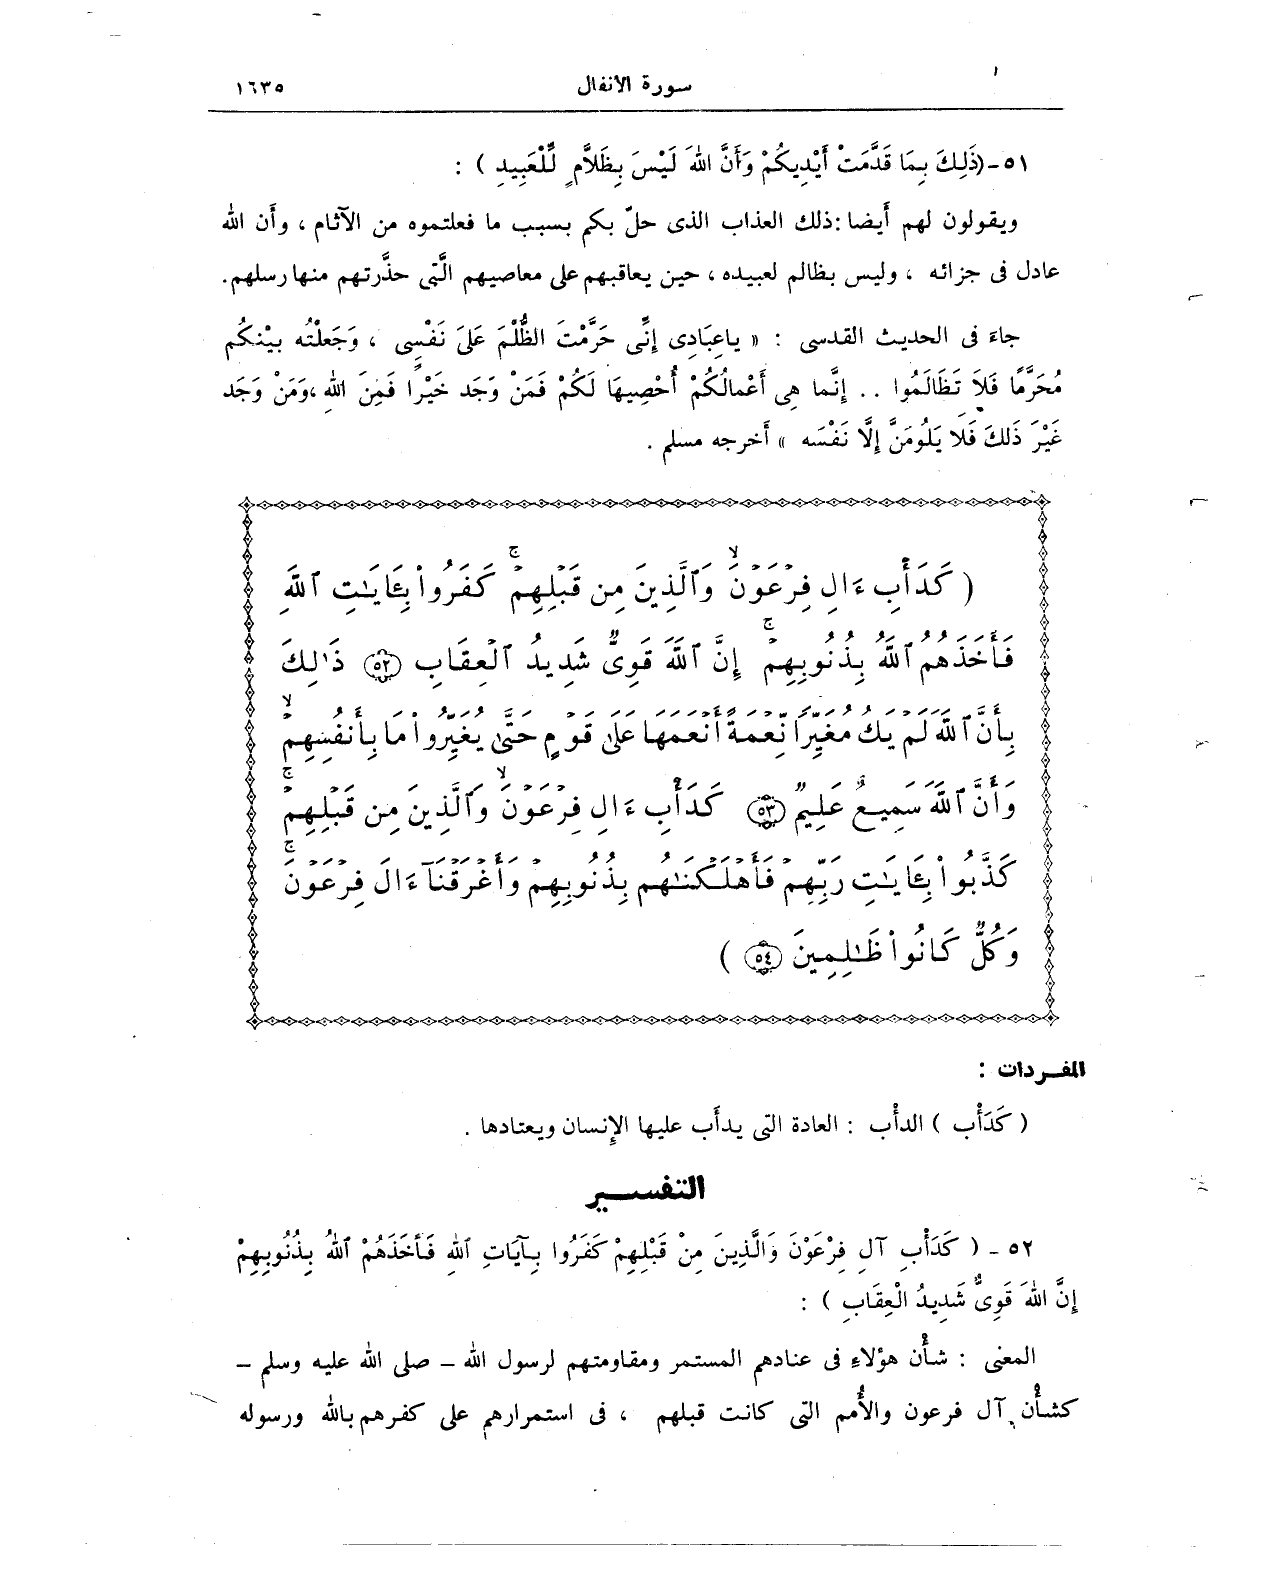 سورة الانفال ١٦٣٥
٥١-(ذَلِكَ بِمَا قَدَّمَتْ أَيْدِيكُمْ وَأَنَّ اللهَ لَيْسَ بِظَلَّامٍ لِّلْعَبِيدِ ) :
ويقولون لهم أَيضا : ذلك العذاب الذى حلّ بكم بسبب ما فعلتموه من الآثام ، وأَن الله
عادل فى جزائه ، وليس بظالم لعبيده ، حين يعاقبهم على معاصيهم الَّتى حذَّرتهم منها رسلهم.
جاءَ فى الحديث القدسى : « ياعِبَادِى إنِّى حَرَّمْتُ الظُّلْمَ عَلَىَ نَفْسِى ، وَجَعَلْتُه بيْنكُم
مُحَرَّمًا فَلَا تَظَالَمُوا .. إِنَّما هِى أَعْمالُكُمْ أُحْصِيهَا لَكُمْ فَمَنْ وَجَد خَيْرًا فَمِنَ اللهِ ،وَمَنْ وَجَد
غَيْرَ ذَلِكَ فَلَا يَلُومَنَّ إِلَّا نَفْسَه » أَخرجه مسلم .
( كَدَأْبِ ءَالِ فِرْعَوْنَ ۙ وَٱلَّذِينَ مِن قَبْلِهِمْ ۚ كَفَرُوا۟ بِـَٔايَـٰتِ ٱللَّهِ
فَأَخَذَهُمُ ٱللَّهُ بِذُنُوبِهِمْ ۚ إِنَّ ٱللَّهَ قَوِىٌّ شَدِيدُ ٱلْعِقَابِ ٥٢ ذَٰلِكَ
بِأَنَّ ٱللَّهَ لَمْ يَكُ مُغَيِّرًا نِّعْمَةً أَنْعَمَهَا عَلَىٰ قَوْمٍ حَتَّىٰ يُغَيِّرُوا۟ مَا بِأَنفُسِهِمْ ۙ
وَأَنَّ ٱللَّهَ سَمِيعٌ عَلِيمٌ ٥٣ كَدَأْبِ ءَالِ فِرْعَوْنَ ۙ وَٱلَّذِينَ مِن قَبْلِهِمْ ۚ
كَذَّبُوا۟ بِـَٔايَـٰتِ رَبِّهِمْ فَأَهْلَكْنَـٰهُم بِذُنُوبِهِمْ وَأَغْرَقْنَآ ءَالَ فِرْعَوْنَ ۚ
وَكُلٌّ كَانُوا۟ ظَـٰلِمِينَ ٥٤ )
المفـردات :
( كَدَأْب ) الدأْب : العادة التى يدأَب عليها الإِنسان ويعتادها .
التفسـير
٥٢ - ( كَدَأْبِ آلِ فِرْعَوْنَ وَالَّذِينَ مِنْ قَبْلِهِمْ كَفَرُوا بِآيَاتِ ٱللهِ فَأَخَذَهُمْ ٱللهُ بِذُنُوبِهِمْ
إِنَّ اللهَ قَوِىٌّ شَدِيدُ الْعِقَابِ ) :
المعنى : شأْن هؤلاءِ فى عنادهم المستمر ومقاومتهم لرسول الله – صلى الله عليه وسلم –
كشأْن آل فرعون والأُمم التى كانت قبلهم ، فى استمرارهم على كفرهم بالله ورسوله